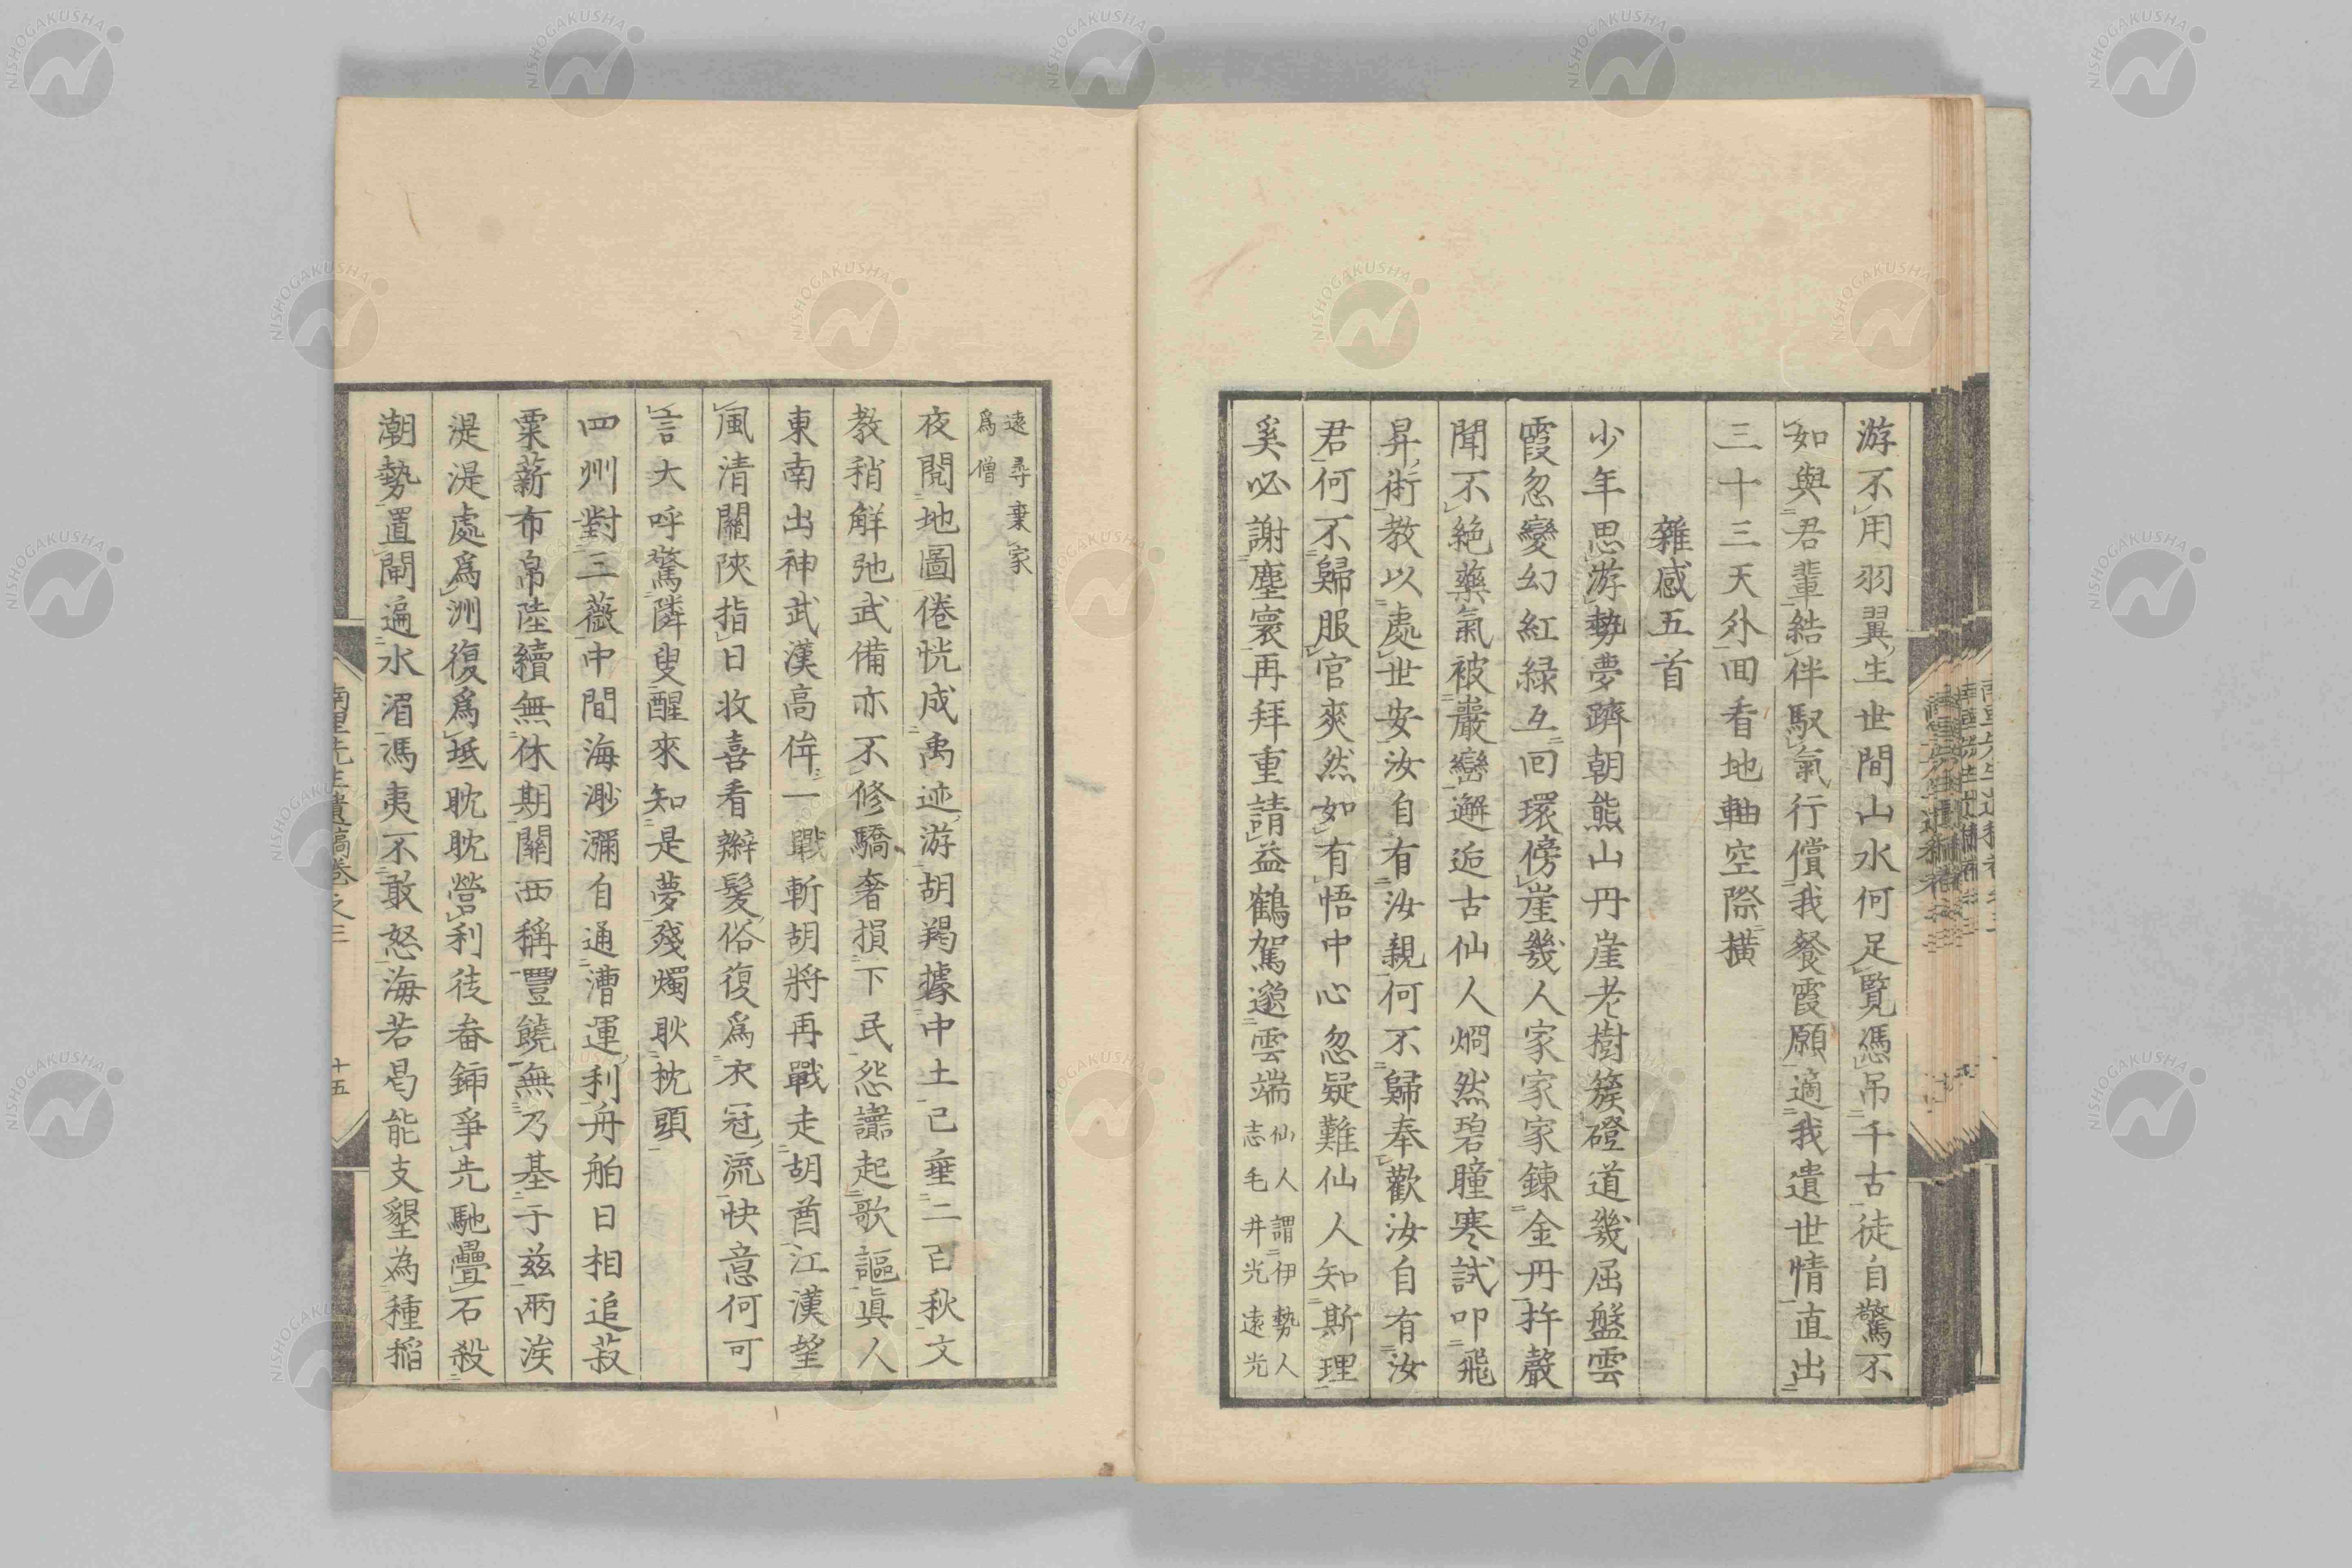 游不用羽翼生世間山水何足覽憑吊千古徒自驚不
如與君輩結伴馭氣行償我餐霞願適我遺世情直出
三十三天外回看地軸空際橫
雜感五首
少年思游勢夢躋朝熊山丹崖老樹簇磴道幾屈盤雲
霞忽變幻紅緑互回環傍崖幾人家家家鍊金丹杵聲
聞不絶藥氣被巖巒邂逅古仙人烱然碧瞳寒試叩飛
昇術教以處世安汝自有汝親何不歸奉歡汝自有汝
君何不歸服官爽然如有悟中心忽疑難仙人知斯理
奚必謝塵寰再拜重請益鶴駕邈雲端
仙人謂伊勢人
志毛井光遠光
遠尋棄家
爲僧
夜閱地圖倦恍成禹迹游胡羯據中土已垂二百秋文
教稍解弛武備亦不修驕奢損下民怨讟起歌謳眞人
東南出神武漢高侔一戰斬胡將再戰走胡酋江漢望
風清關陝指日收喜看辮髮俗復爲衣冠流快意何可
言大呼驚隣叟醒來知是夢殘燭耿枕頭
四州對三薇中間海渺瀰自通漕運利舟舶日相追菽
粟薪布帛陸續無休期關西稱豐饒無乃基于玆兩涘
湜湜處爲洲復爲坻眈眈營利徒畚鍤爭先馳疊石殺
潮勢置閘遍水湄馮夷不敢怒海若曷能支墾為種稻
南里先生遺稿卷之三
十五
NISHOGAKUSHA